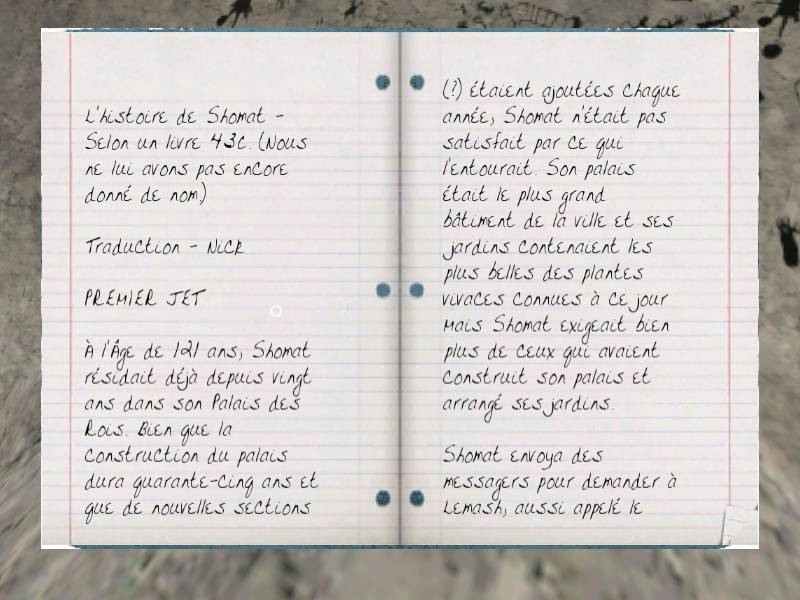 L'histoire de Shomat -
Selon un livre 43c. (Nous
ne lui avons pas encore
donné de nom)
Traduction - Nick
PREMIER JET
À l'Âge de 121 ans, Shomat
résidait déjà depuis vingt
ans dans son Palais des
Rois. Bien que la
construction du palais
dura quarante-cinq ans et
que de nouvelles sections
(?) étaient ajoutées chaque
année, Shomat n'était pas
satisfait par ce qui
l'entourait. Son palais
était le plus grand
bâtiment de la ville et ses
jardins contenaient les
plus belles des plantes
vivaces connues à ce jour
mais Shomat exigeait bien
plus de ceux qui avaient
construit son palais et
arrangé ses jardins.
Shomat envoya des
messagers pour demander à
Lemash, aussi appelé le